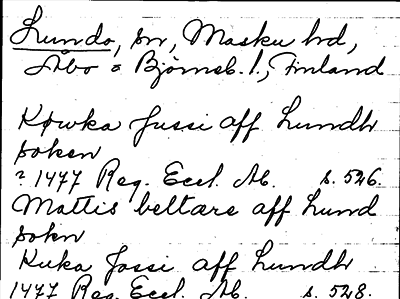 Lundo, sn, Masku hd,
Åbo o Björneb. l., Finland
Kowka Jussi aff Lundh
soken
? 1477 Reg. Eccl. Ab. s. 526.
Mattis beltare aff Lund
sokn
Kuka Jossi aff Lundh
1477 Reg. Eccl. Ab. s. 528.